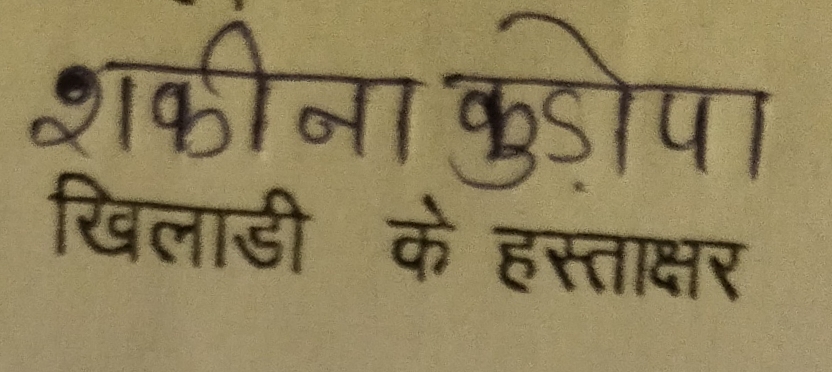 शकीना कुड़ोपा
खिलाडी के हस्ताक्षर